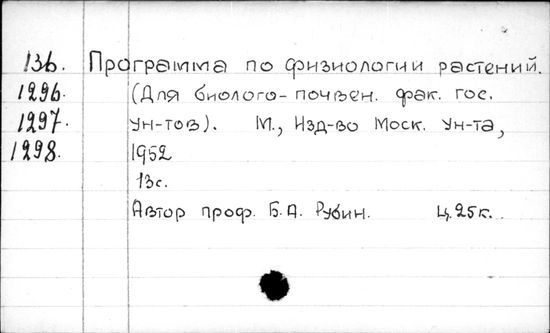 136. Программа по физиологии растений.
1296. (Для биолого-почвен. фак. гос.
1297. ун-тов). М., Изд-во Моск. Ун-та,
1298. 1952
13с.
Автор проф. Б.А. Рубин. Ц. 25к.